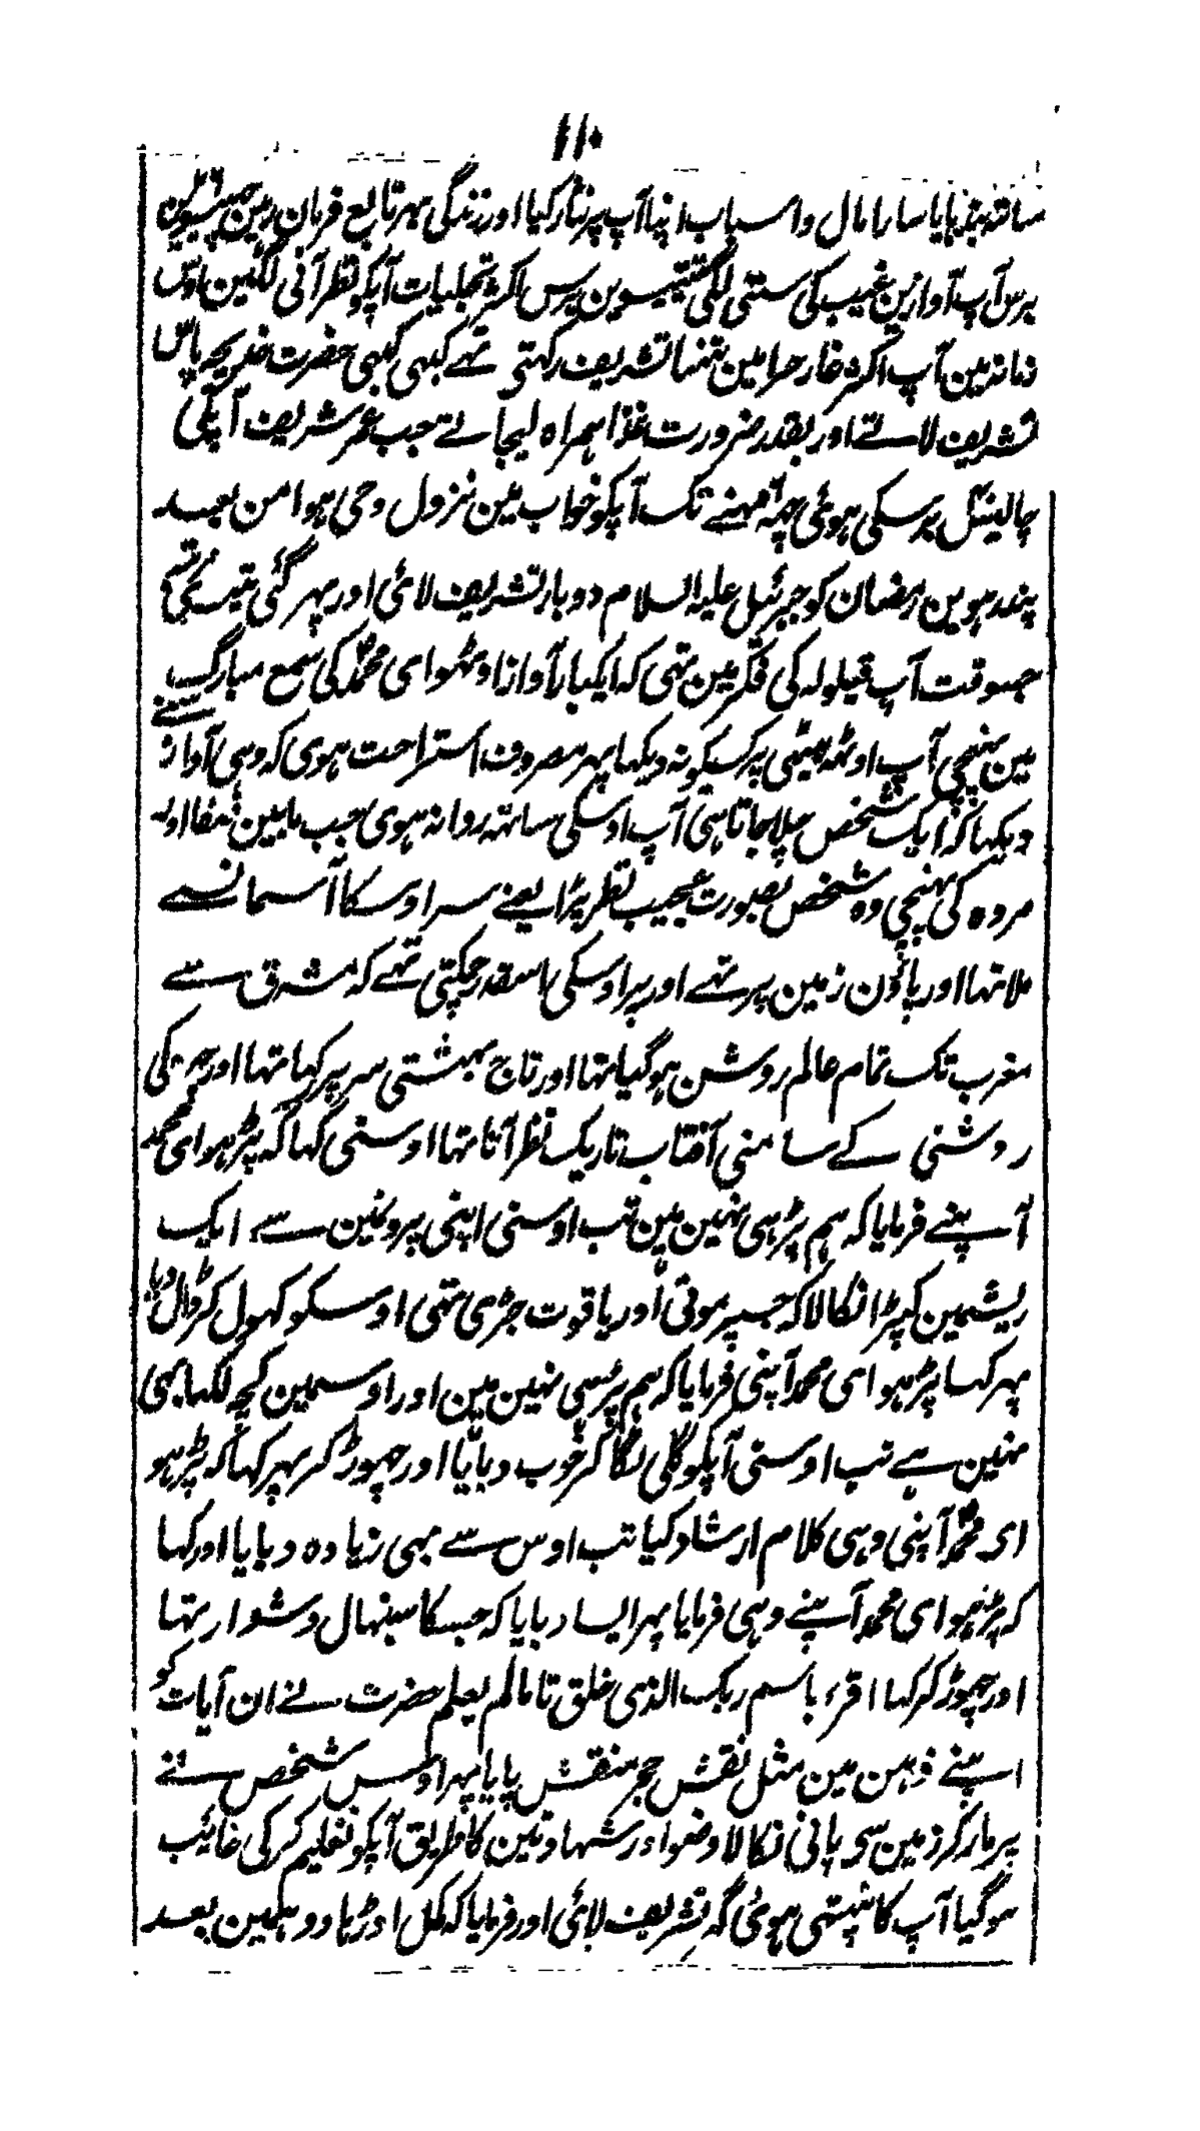 ۱۱۰
ساتہہ بندہایا سارا مال و اسباب اپنا آپ پر نثار کیا اور زندگی بہر تابع فرمان رہین
برس آپ آوازین غیب کی سننی لگی تیئیسوین برس اکثر تجلیات آپکو نظر آنی لگین اوس
زمانہ مین آپ اکثر غار حرا مین تنہا تشریف رکہتی تہے کبہی کبہی حضرت خدیجہ پاس
تشریف لاتے اور بقدر ضرورت غذا ہمراہ لیجاتے جب عمر شریف آپکی
چالیس برسکی ہوئی چہہ مہینے تک آپکو خواب مین نزول وحی ہوا من بعد
پندرہوین رمضان کو جبرئیل علیہ السلام دوبار تشریف لائی اور پہر گئی تیسری مرتبہ
جسوقت آپ قیلولہ کی فکر مین تہی کہ ایکبار آواز اوٹہو ای محمدؐ کی سمع مبارک
مین پہنچی آپ اوٹہہ بیٹہی پر کسیکو نہ دیکہا پہر مصروف استراحت ہوی کہ وہی آواز سنے
دیکہا کہ ایک شخص چلا جاتا ہی آپ اوسکی ساتہہ روانہ ہوی جب مابین صفا اور
مروہ کی پہنچی وہ شخص بصورت عجیب نظر پڑا یعنے سر اوسکا آسمان سے
ملا تہا اور پانؤن زمین پر تہے اور پر اوسکی اسقدر چمکتی تہے کہ مشرق سے
مغرب تک تمام عالم روشن ہوگیا تہا اور تاج بہشتی سر پر رکہا تہا اور چہریکی
روشنی کے سامنی آفتاب تاریک نظر آتا تہا اوسنی کہا کہ پڑہو ای محمد
آپنے فرمایا کہ ہم پڑہی نہین ہین تب اوسنی اپنی پرونمین سے ایک
ریشمین کپڑا نکالا کہ جسپر موتی اور یاقوت جڑی تہی اوسکو کہول کر ڈال دیا
پہر کہا پڑہو ای محمد آپنی فرمایا کہ ہم پڑہی نہین ہین اور اوسمین کچہہ لکہا بہی
نہین ہے تب اوسنی آپکو گلی لگا کر خوب دبایا اور چہوڑ کر پہر کہا کہ پڑہو
ای محمدؐ آپنی وہی کلام ارشاد کیا تب اوس سے بہی زیادہ دبایا اور کہا
کہ پڑہو ای محمدؐ آپنے وہی فرمایا پہر ایسا دبایا کہ جسکا سنبہال دشوار تہا
اور چہوڑ کر کہا اقرء باسم ربک الذی خلق تا مالم یعلم حضرت نے ان آیات کو
اپنے ذہن مین مثل نقش حجر منقش پایا پہر اوس شخص نے
پر مار کر زمین سی پانی نکالا وضو اور شہادتین کا طریق آپکو تعلیم کر کی غائب
ہوگیا آپ کانپتی ہوئی گہر تشریف لائی اور فرمایا کہ کمل اوڑہا دو ہمین بعد